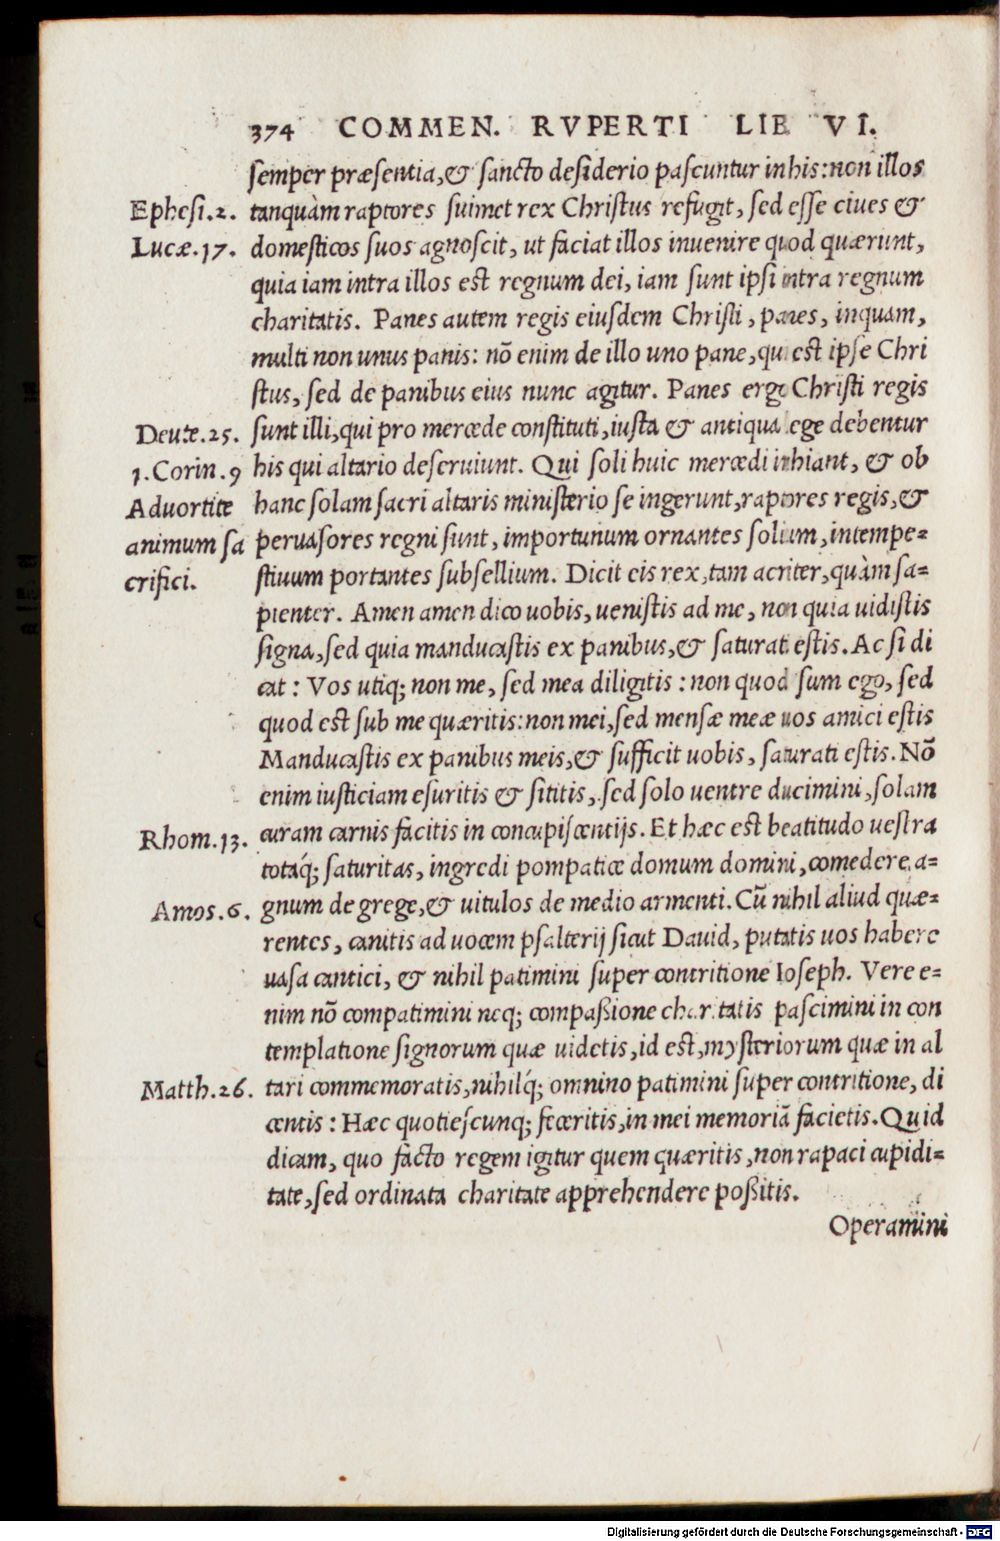 374 COMMEN. RVPERTI LIB VI.
semper præsentia, & sancto desiderio pascuntur in his: non illos
Ephesi.2. tanquàm raptores suimet rex Christus refugit, sed esse ciues &
Lucæ.17. domesticos suos agnoscit, ut faciat illos inuenire quod quærunt,
quia iam intra illos est regnum dei, iam sunt ipsi intra regnum
charitatis. Panes autem regis eiusdem Christi, panes, inquam,
multi non unus panis: nõ enim de illo uno pane, qui est ipse Chri
stus, sed de panibus eius nunc agitur. Panes ergo Christi regis
Deute.25. sunt illi, qui pro mercede constituti, iusta & antiqua lege debentur
1.Corin.9 his qui altario deseruiunt. Qui soli huic mercedi inhiant, & ob
Aduortite hanc solam sacri altaris ministerio se ingerunt, raptores regis, &
animum sa peruasores regni sunt, importunum ornantes solium, intempe=
crifici. stiuum portantes subsellium. Dicit eis rex, tam acriter, quàm sa=
pienter. Amen amen dico uobis, uenistis ad me, non quia uidistis
signa, sed quia manducastis ex panibus, & saturati estis. Ac si di
cat: Vos utiq; non me, sed mea diligitis: non quod sum ego, sed
quod est sub me quæritis: non mei, sed mensæ meæ uos amici estis
Manducastis ex panibus meis, & sufficit uobis, saturati estis. Nõ
enim iusticiam esuritis & sititis, sed solo uentre ducimini, solam
Rhom.13. curam carnis facitis in concupiscentijs. Et hæc est beatitudo uestra
totaq́; saturitas, ingredi pompaticæ domum domini, comedere a=
Amos.6. gnum de grege, & uitulos de medio armenti. Cũ nihil aliud quæ=
rentes, canitis ad uocem psalterij sicut Dauid, putatis uos habere
uasa cantici, & nihil patimini super contritione Ioseph. Vere e=
nim nõ compatimini neq; compaßione charitatis pascimini in con
templatione signorum quæ uidetis, id est, mysteriorum quæ in al
Matth.26. tari commemoratis, nihilq́; omnino patimini super contritione, di
centis: Hæc quotiescunq; feceritis, in mei memoriã facietis. Quid
dicam, quo facto regem igitur quem quæritis, non rapaci cupidi=
tate, sed ordinata charitate apprehendere poßitis.
Operamini
Digitalisierung gefördert durch die Deutsche Forschungsgemeinschaft - DFG